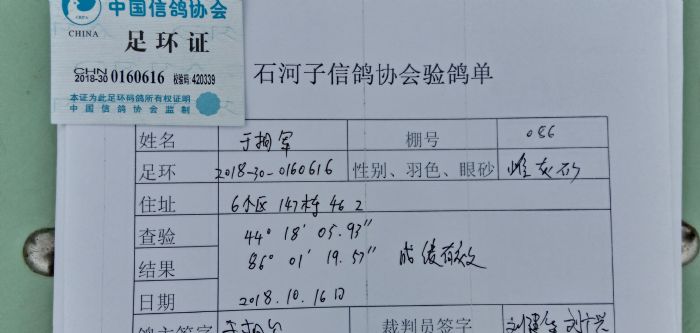 中国信鸽协会
CHINA
足环证
CHN
2018-30 0160616 校验码:420339
本证为此足环码鸽所有权证明
中国信鸽协会监制
石河子信鸽协会验鸽单
姓名 于相军 棚号 086
足环 2018-30-0160616 性别、羽色、眼砂 雌灰砂
住址 6小区 147栋 46 2
查验 44° 18′ 05.93″
结果 86° 01′ 19.57″ 成绩有效
日期 2018.10.16日
鸽主签字 于相军 裁判员签字